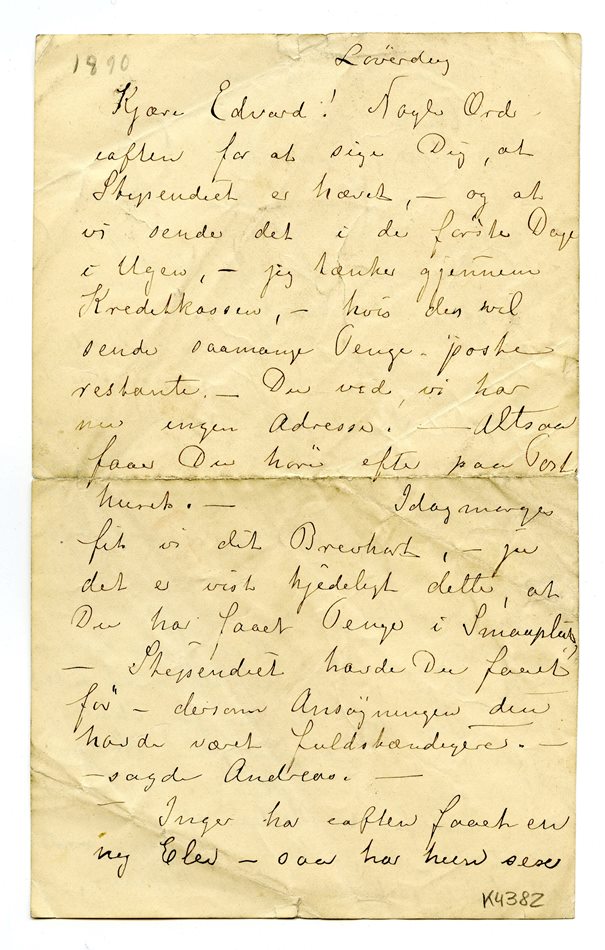 1890
Löverdag
Kjære Edvard! Nogle Ord
iaften for at sige Dig, at
Stipendiet er hævet, – og at
vi sender det i de første Dage
i Ugen, – jeg tænker gjennem
Kreditkassen, – hvis den vil
sende saamange Penge poste
restante. – Du ved, vi har
nu ingen Adresse. – Altsaa
faar Du höre efter paa Post
huset. – Idagmorges
fik vi dit Brevkort, – ja
det er vist kjedeligt dette, at
Du har faaet Penge i Smaaplük,
– Stipendiet havde Du faaet
før – dersom Ansøgningen din
havde været fuldstændigere. –
– sagde Andreas. –
Inger har iaften faaet en
ny Elev – saa har hun sex
K4382